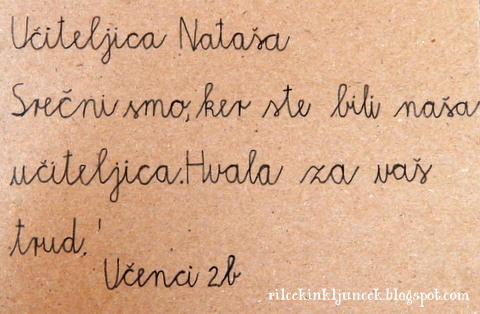 Učiteljica Nataša
Srečni smo, ker ste bili naša
učiteljica. Hvala za vaš
trud.!
Učenci 2b
rilcekinkljuncek.blogspot.com